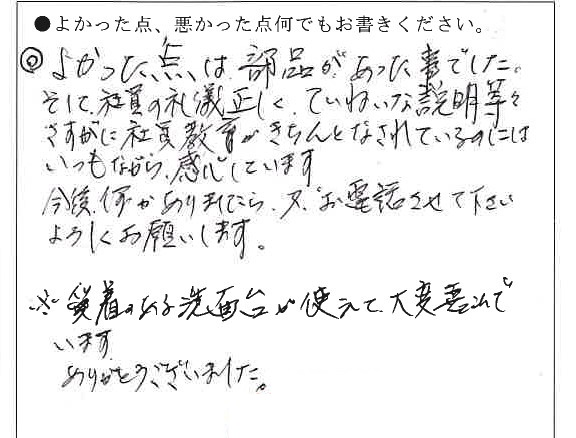 ●よかった点、悪かった点何でもお書きください。
◎よかった点は部品があった事でした。
そして、社員の礼儀正しく、ていねいな説明等々
さすがに社員教育がきちんとなされているのには
いつもながら、感心しています
今後、何かありましたら、又、お電話させて下さい
よろしくお願いします。
※愛着のある洗面台が使えて、大変喜んで
います
ありがとうございました。